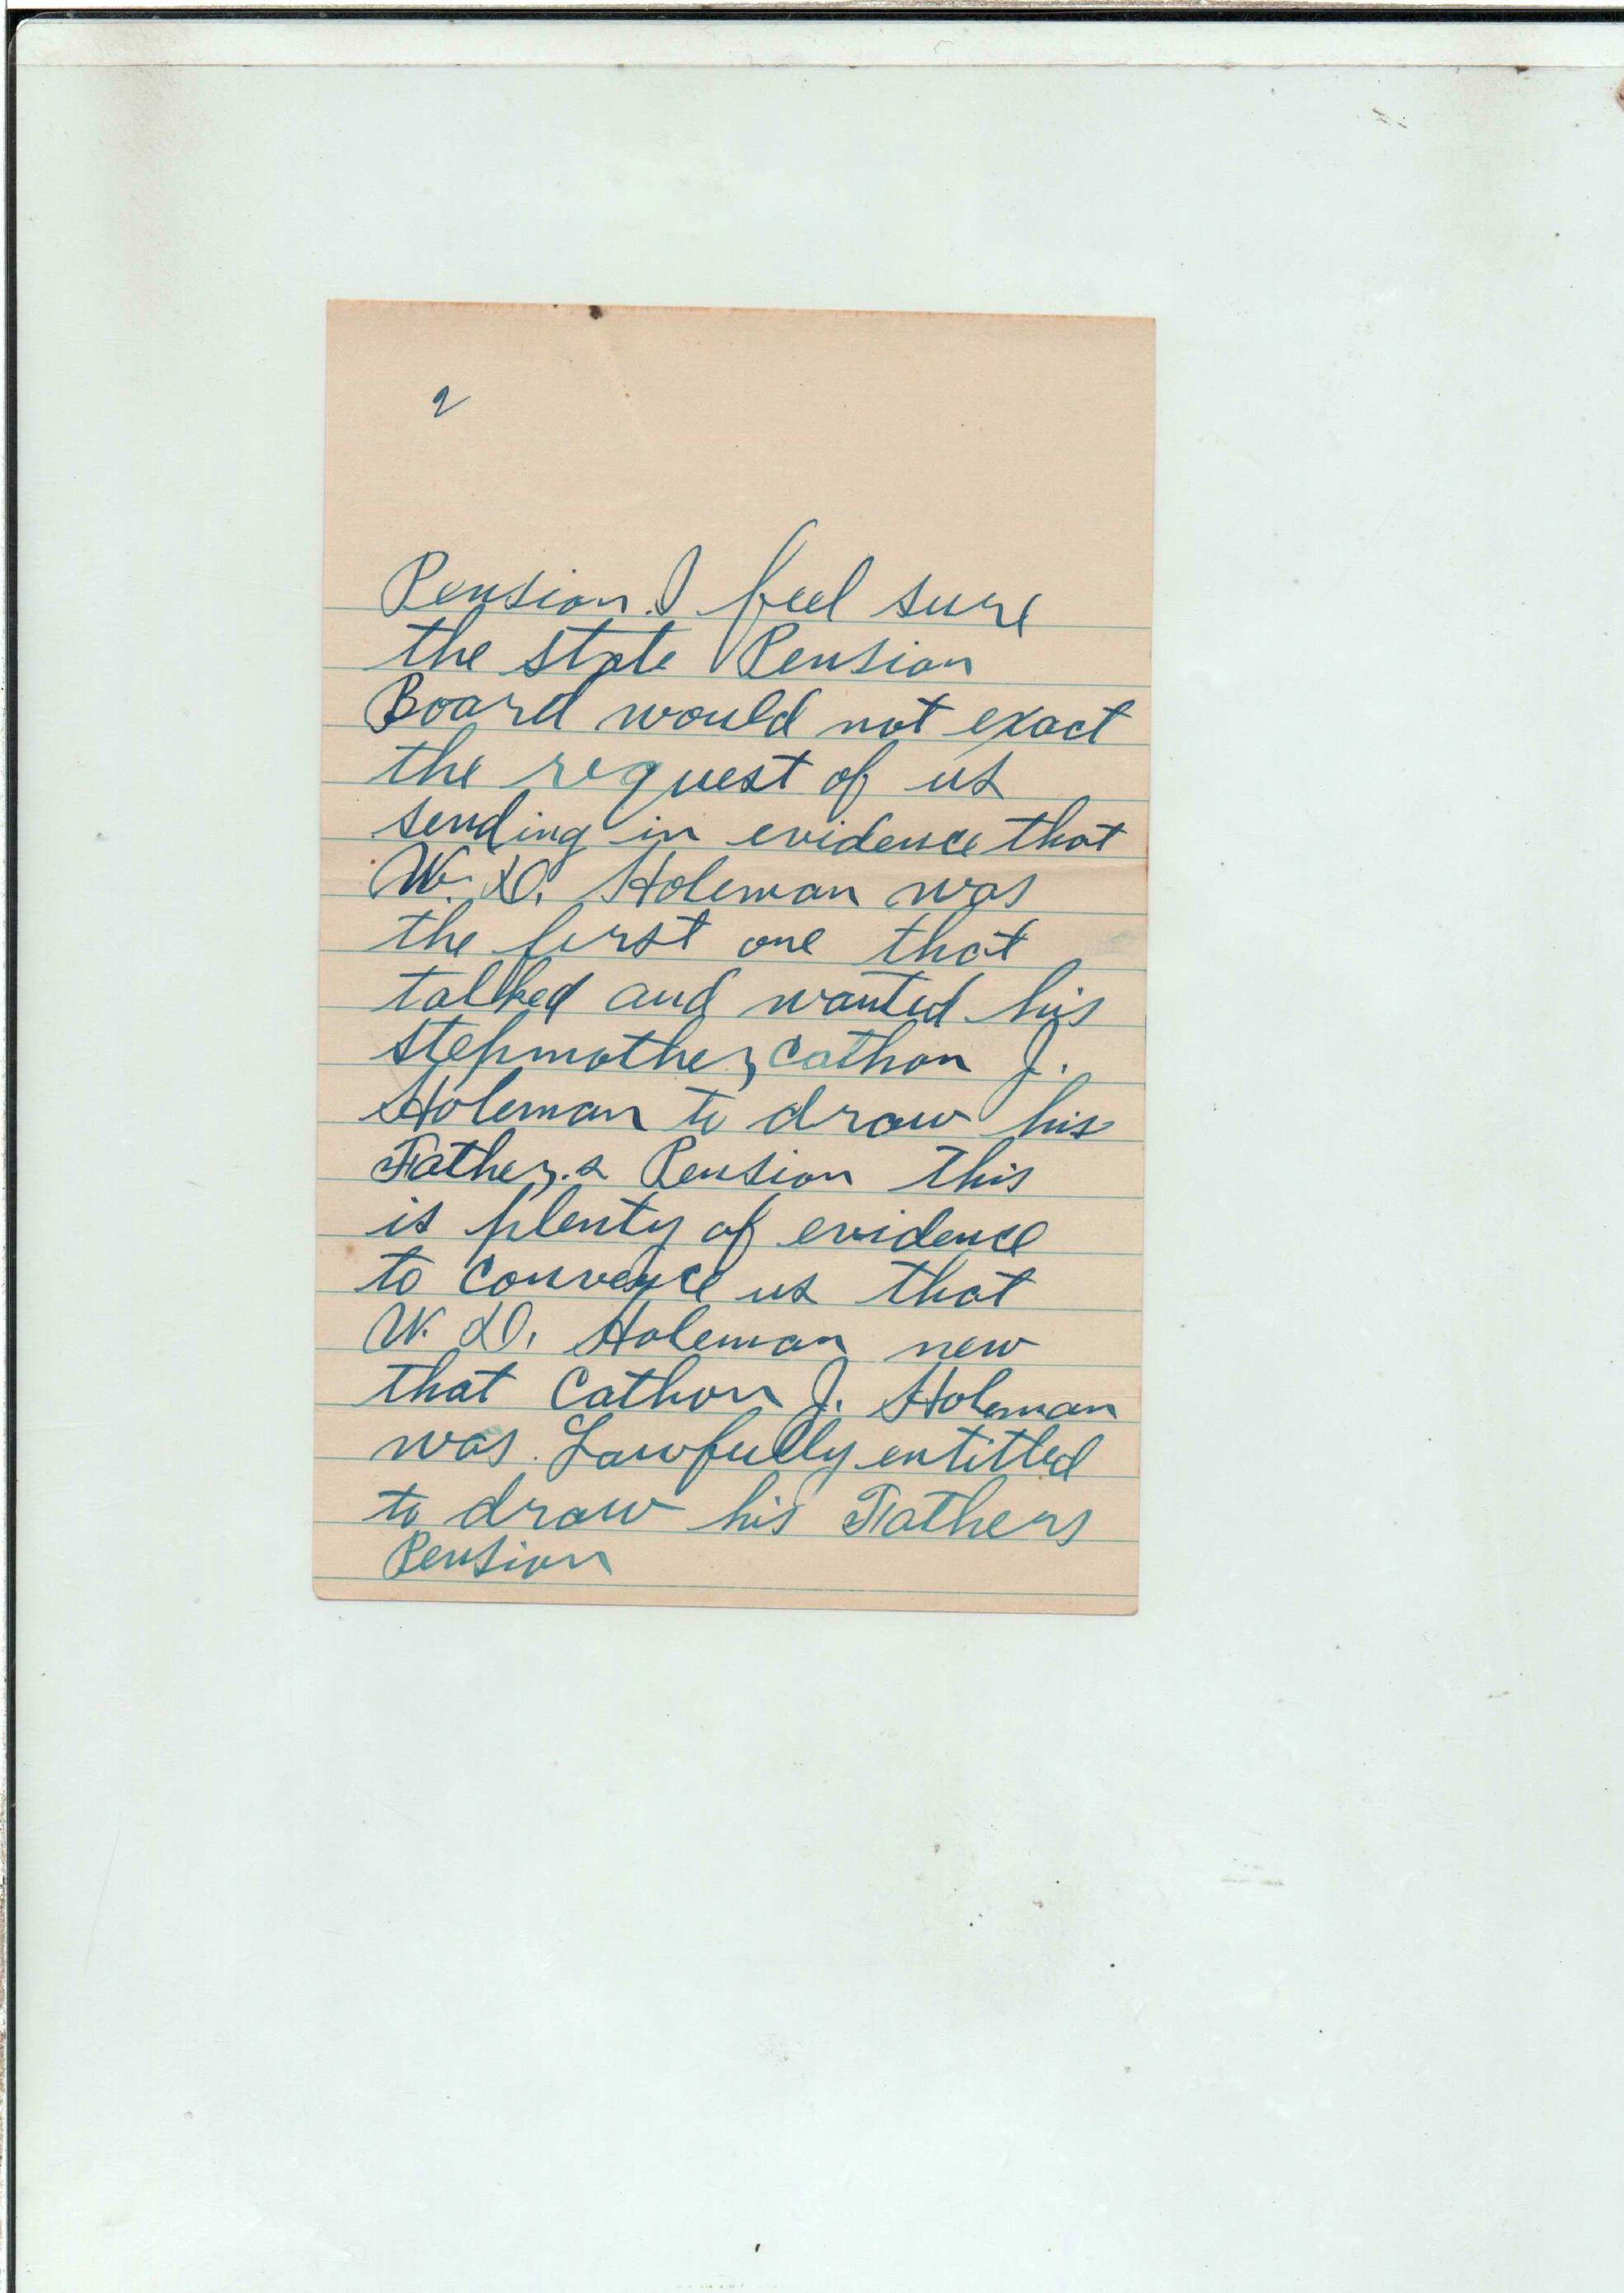 2
Pension. I feel sure
the state Pension
Board would not exact
the request of us
sending in evidence that
W. D. Holeman was
the first one that
talked and wanted his
stepmother, Cathon J.
Holeman to draw his
Father.s Pension this
is plenty of evidence
to conveyce us that
W. D. Holeman new
that Cathon J. Holeman
was Lawfully entitled
to draw his Fathers
Pension